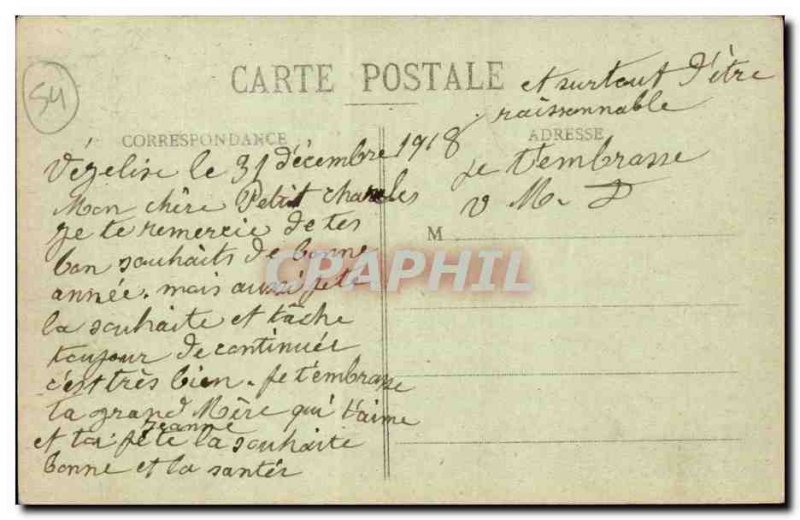 54
CARTE POSTALE
CORRESPONDANCE
ADRESSE
Vézelise le 31 décembre 1918
Mon chère Petit charles
je te remercie de tes
bon souhaits de bonne
année. mais aussi je te
la souhaite et tâche
toujour de continuée
c'est très bien. je t'embrasse
ta grand Mère qui t'aime
Jeanne
et ta fete la souhaite
bonne et la santée
et surtout d'être
raissonnable
Je t'embrasse
V M.
M
CPAPHIL